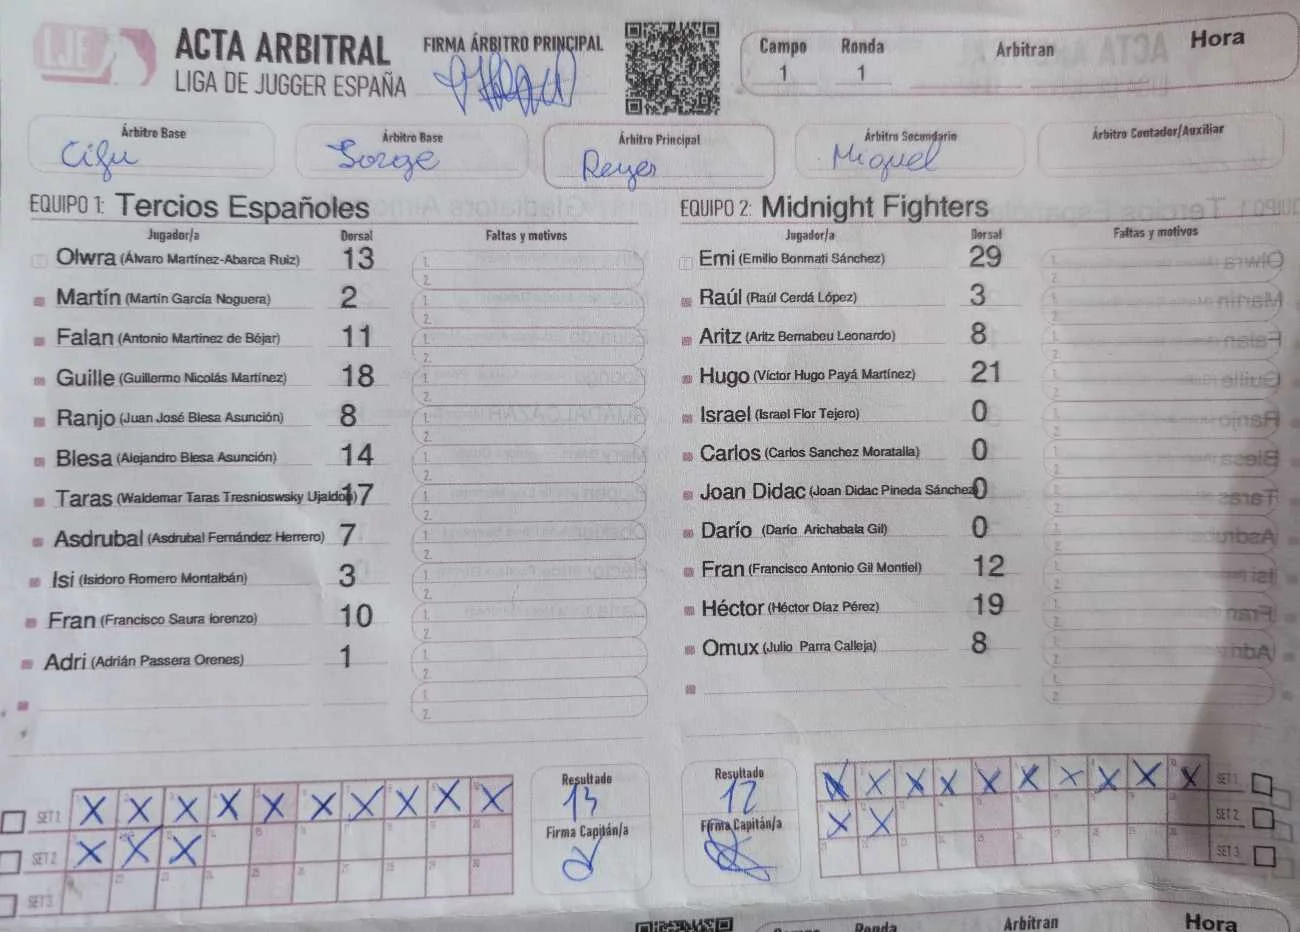 LJE
ACTA ARBITRAL
LIGA DE JUGGER ESPAÑA
FIRMA ÁRBITRO PRINCIPAL
Campo Ronda Arbitran Hora
1 1
Árbitro Base Árbitro Base Árbitro Principal Árbitro Secundario Árbitro Contador/Auxiliar
Cifu Jorge Reyes Miguel
EQUIPO 1: Tercios Españoles
Jugador/a Dorsal Faltas y motivos
Olwra (Álvaro Martínez-Abarca Ruiz) 13 1. 2.
Martín (Martín García Noguera) 2 1. 2.
Falan (Antonio Martinez de Béjar) 11 1. 2.
Guille (Guillermo Nicolás Martínez) 18 1. 2.
Ranjo (Juan José Blesa Asunción) 8 1. 2.
Blesa (Alejandro Blesa Asunción) 14 1. 2.
Taras (Waldemar Taras Tresniowsky Ujaldón) 17 1. 2.
Asdrubal (Asdrubal Fernández Herrero) 7 1. 2.
Isi (Isidoro Romero Montalbán) 3 1. 2.
Fran (Francisco Saura lorenzo) 10 1. 2.
Adri (Adrián Passera Orenes) 1 1. 2.
1. 2.
EQUIPO 2: Midnight Fighters
Jugador/a Dorsal Faltas y motivos
Emi (Emilio Bonmatí Sánchez) 29 1. 2.
Raúl (Raúl Cerdá López) 3 1. 2.
Aritz (Aritz Bernabeu Leonardo) 8 1. 2.
Hugo (Víctor Hugo Payá Martínez) 21 1. 2.
Israel (Israel Flor Tejero) 0 1. 2.
Carlos (Carlos Sanchez Moratalla) 0 1. 2.
Joan Didac (Joan Didac Pineda Sánchez) 0 1. 2.
Darío (Darío Arichabala Gil) 0 1. 2.
Fran (Francisco Antonio Gil Montiel) 12 1. 2.
Héctor (Héctor Díaz Pérez) 19 1. 2.
Omux (Julio Parra Calleja) 8 1. 2.
1. 2.
SET 1 X X X X X X X X X X
SET 2 X X X
SET 3
Resultado
13
Firma Capitán/a
Resultado
12
Firma Capitán/a
X X X X X X X X X X SET 1
X X SET 2
SET 3
Campo Ronda Arbitran Hora